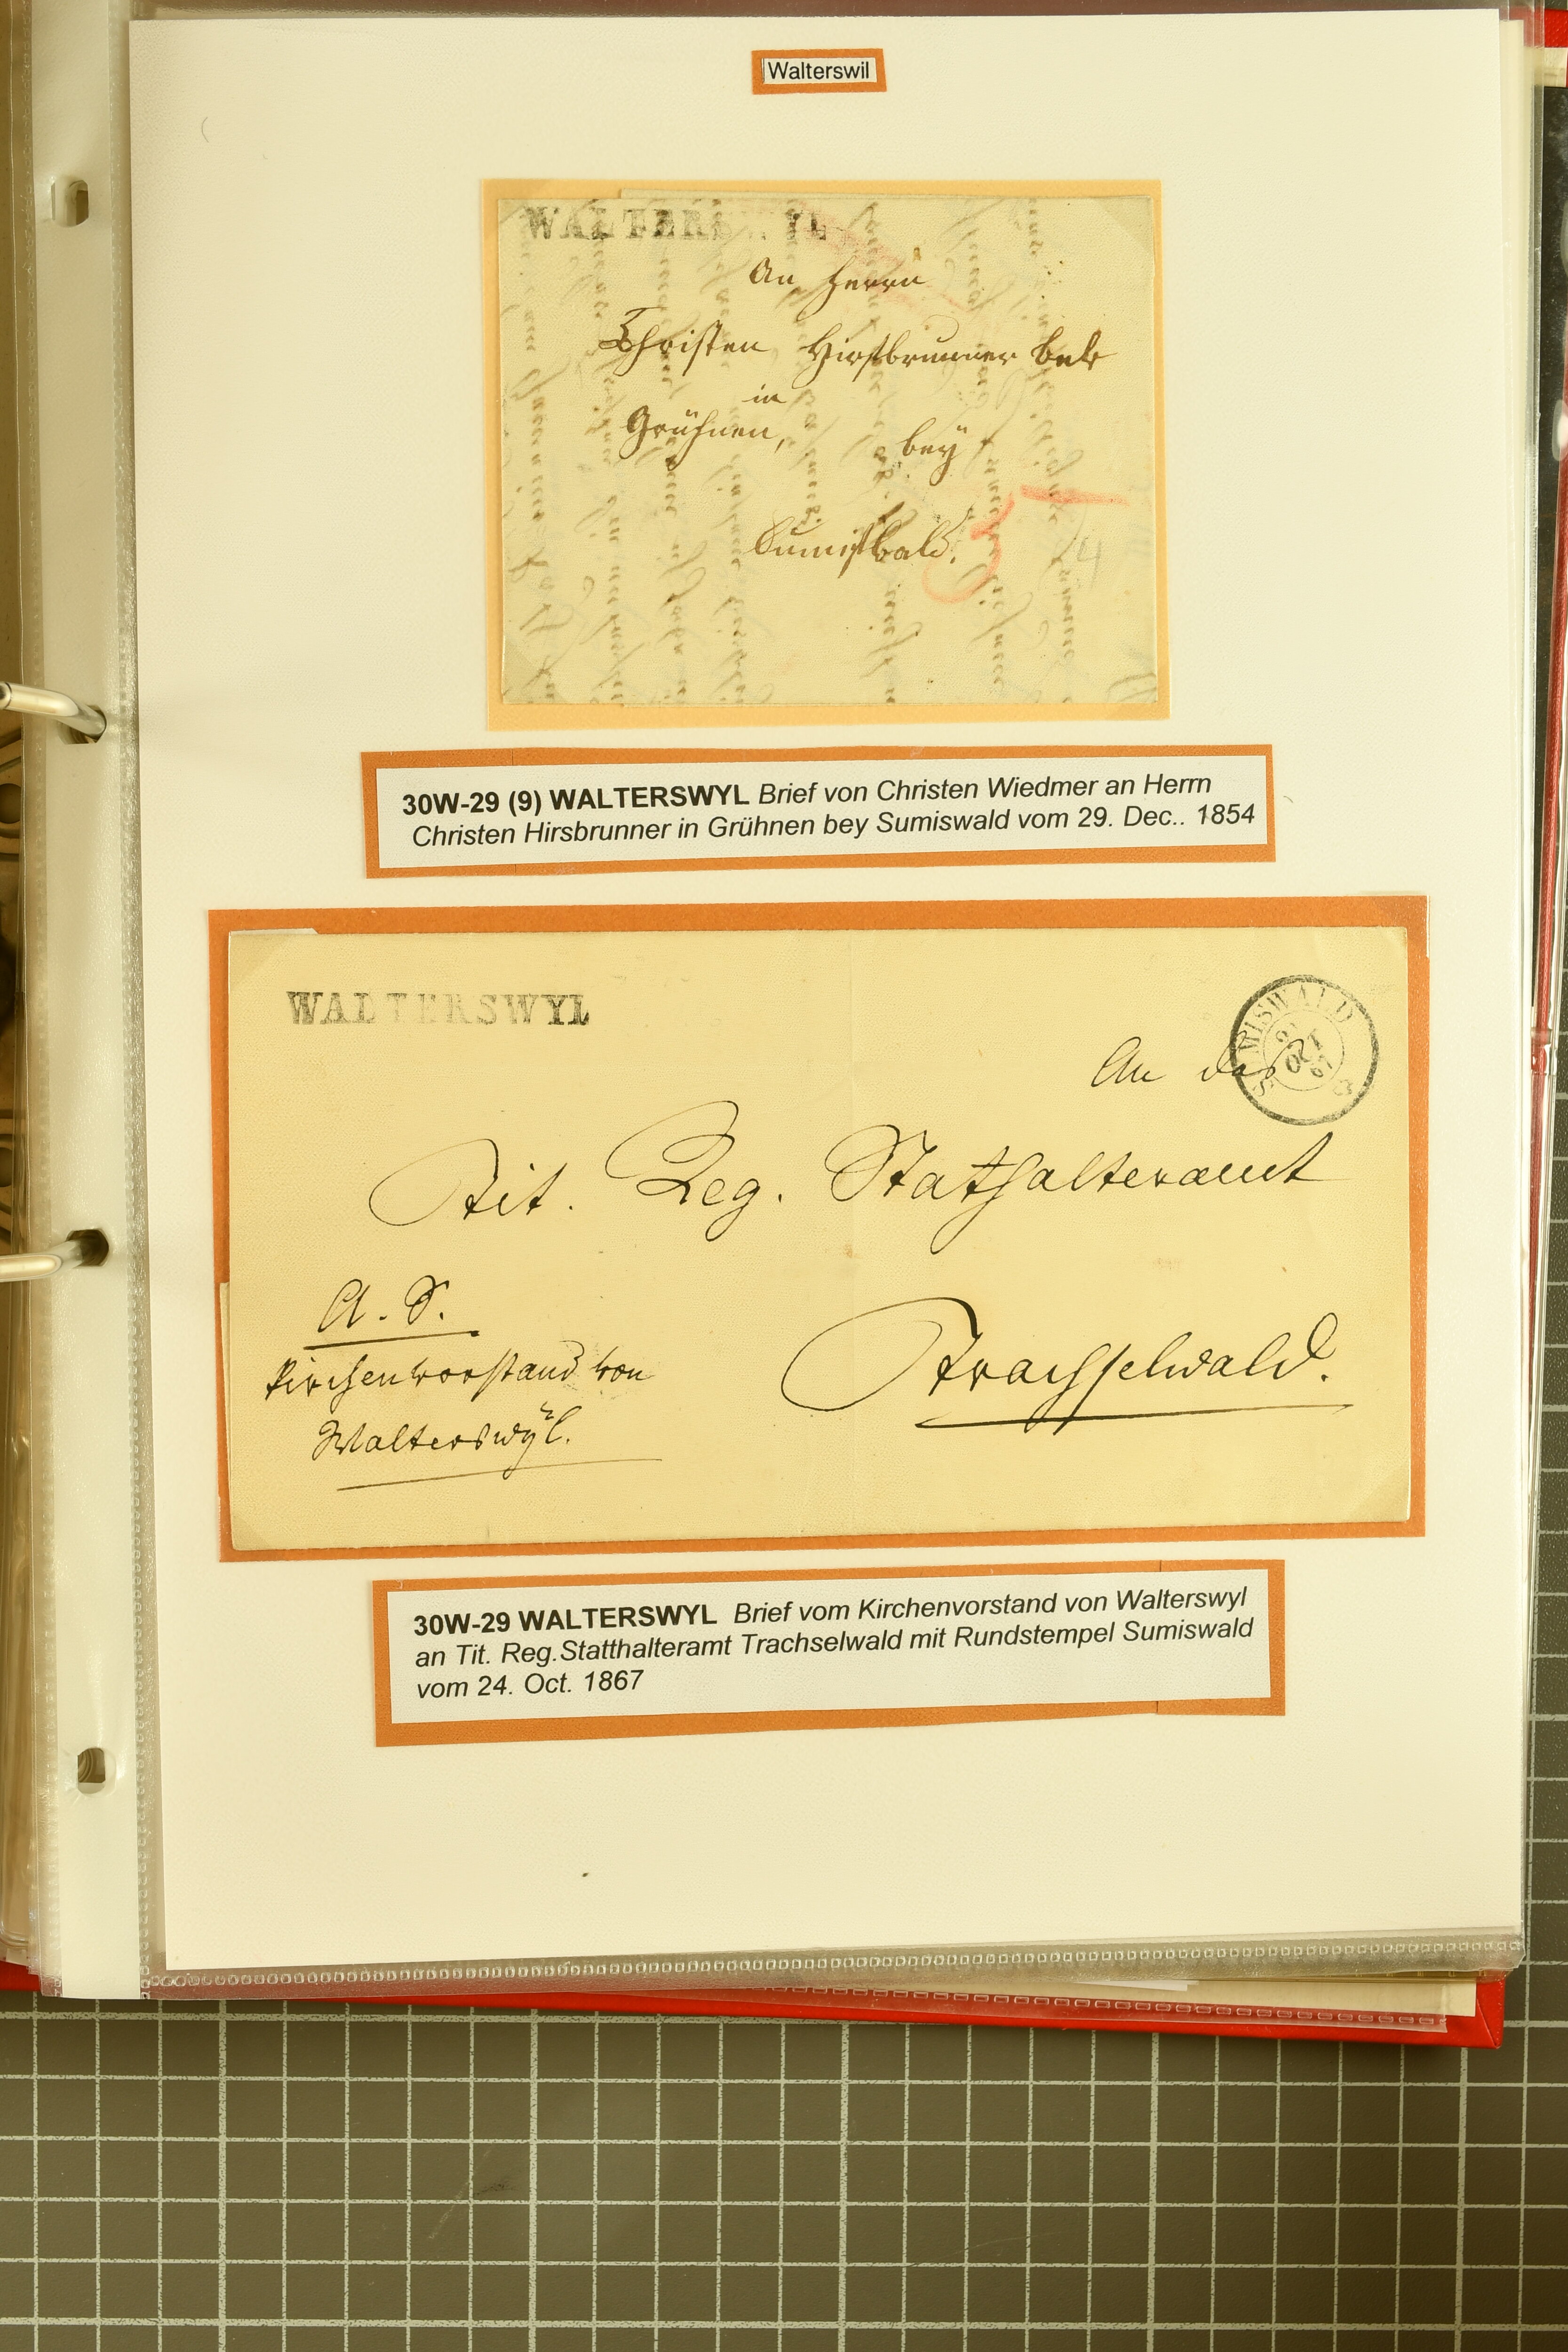 Walterswil
WALTERSWYL
An Herrn
Christen Hirsbrunner
in
Grühnen,
bey
Sumiswald.
30W-29 (9) WALTERSWYL Brief von Christen Wiedmer an Herrn
Christen Hirsbrunner in Grühnen bey Sumiswald vom 29. Dec.. 1854
WALTERSWYL
SUMISWALD
OCT
67
An das
Tit. Reg. Stathalteramt
A. S.
Kirchenvorstand von
Walterswÿl.
Trachselwald.
30W-29 WALTERSWYL Brief vom Kirchenvorstand von Walterswyl
an Tit. Reg.Statthalteramt Trachselwald mit Rundstempel Sumiswald
vom 24. Oct. 1867